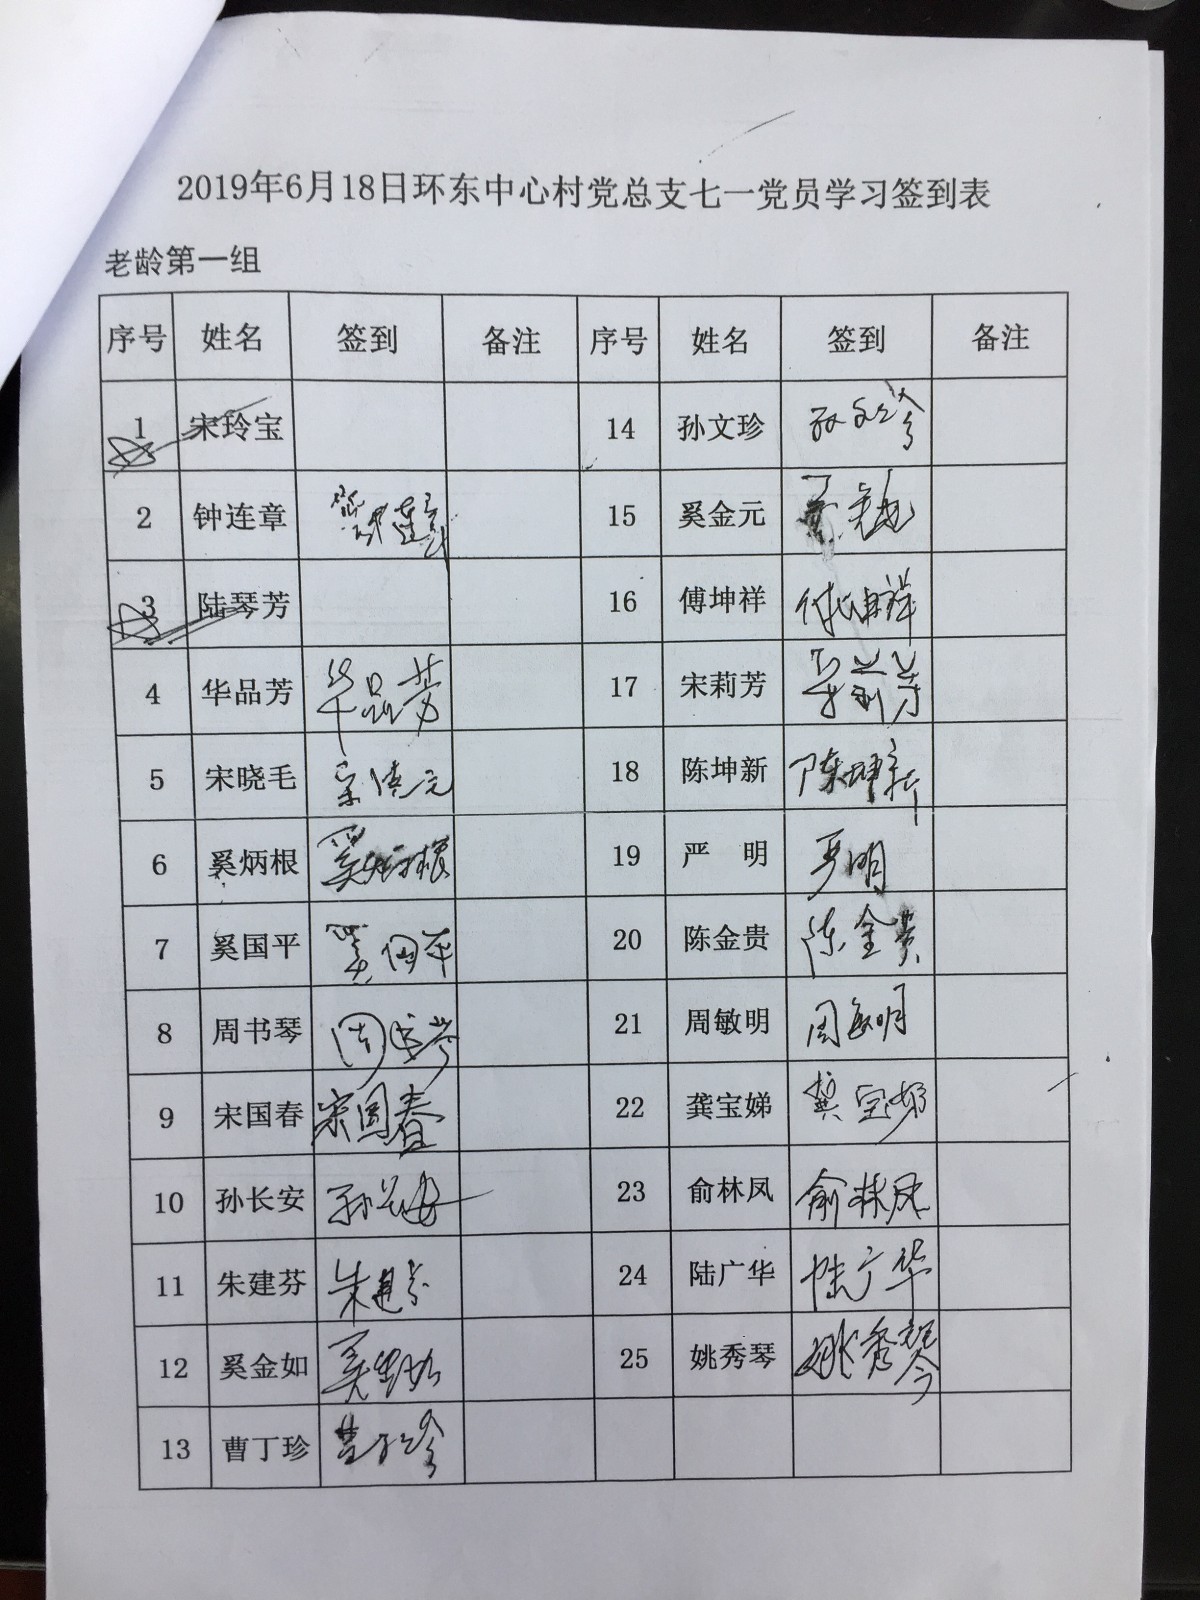 2019年6月18日环东中心村党总支七一党员学习签到表
老龄第一组
序号 姓名 签到 备注 序号 姓名 签到 备注
1 宋玲宝 14 孙文珍 孙文珍
2 钟连章 钟连章 15 奚金元
3 陆琴芳 16 傅坤祥 付坤祥
4 华品芳 华品芳 17 宋莉芳 宋莉芳
5 宋晓毛 18 陈坤新 陈坤新
6 奚炳根 奚炳根 19 严 明 严明
7 奚国平 奚国平 20 陈金贵 陈金贵
8 周书琴 周书琴 21 周敏明 周敏明
9 宋国春 宋国春 22 龚宝娣 龚宝娣
10 孙长安 孙长安 23 俞林凤 俞林凤
11 朱建芬 朱建芬 24 陆广华 陆广华
12 奚金如 奚金如 25 姚秀琴 姚秀琴
13 曹丁珍 曹丁珍